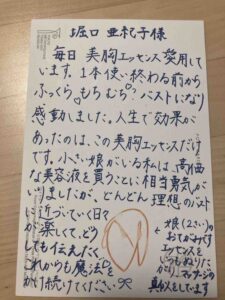 堀口 亜紀子様
毎日 美胸エッセンス愛用して
います。1本使い終わる前から
ふっくら もちむち♡バストになり
感動しました。人生で効果が
あったのは、この美胸エッセンスだけ
です。小さい娘がいる私は高価
な美容液を買うことに相当勇気が
いりましたが、どんどん理想のバスト
に近づいていく日々
が楽しくて、どう
しても伝えたく
これからも魔法を
かけ続けてください。
娘(2さい)の
おてがみです
エッセンスを
いつもぬりた
がり、マッサージの
真似をしています